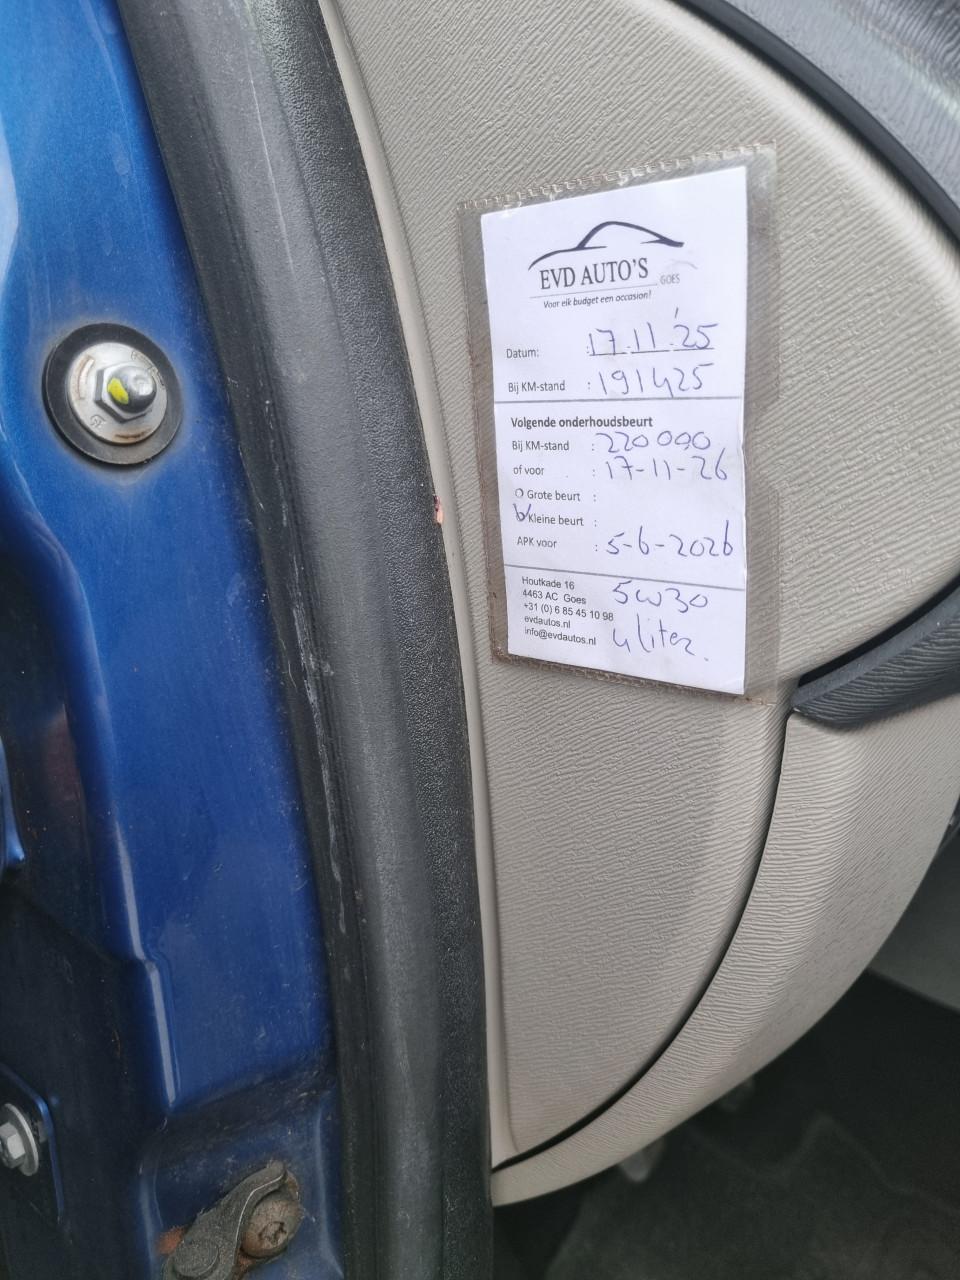 EVD AUTO'S
GOES
Voor elk budget een occasion!
Datum: : 17.11.'25
Bij KM-stand : 191425
Volgende onderhoudsbeurt
Bij KM-stand : 220000
of voor : 17-11-26
Grote beurt :
Kleine beurt :
APK voor : 5-6-2026
Houtkade 16
4463 AC Goes
+31 (0) 6 85 45 10 98
evdautos.nl
info@evdautos.nl
5w30
4 liter.